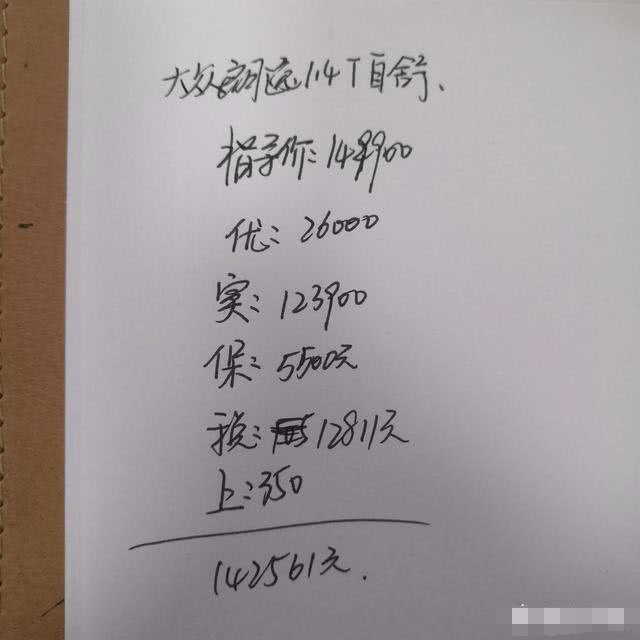 大众朗逸1.4T自舒、
指导价:149900
优:26000
实:123900
保:5500元
税:12811元
上:350
142561元.